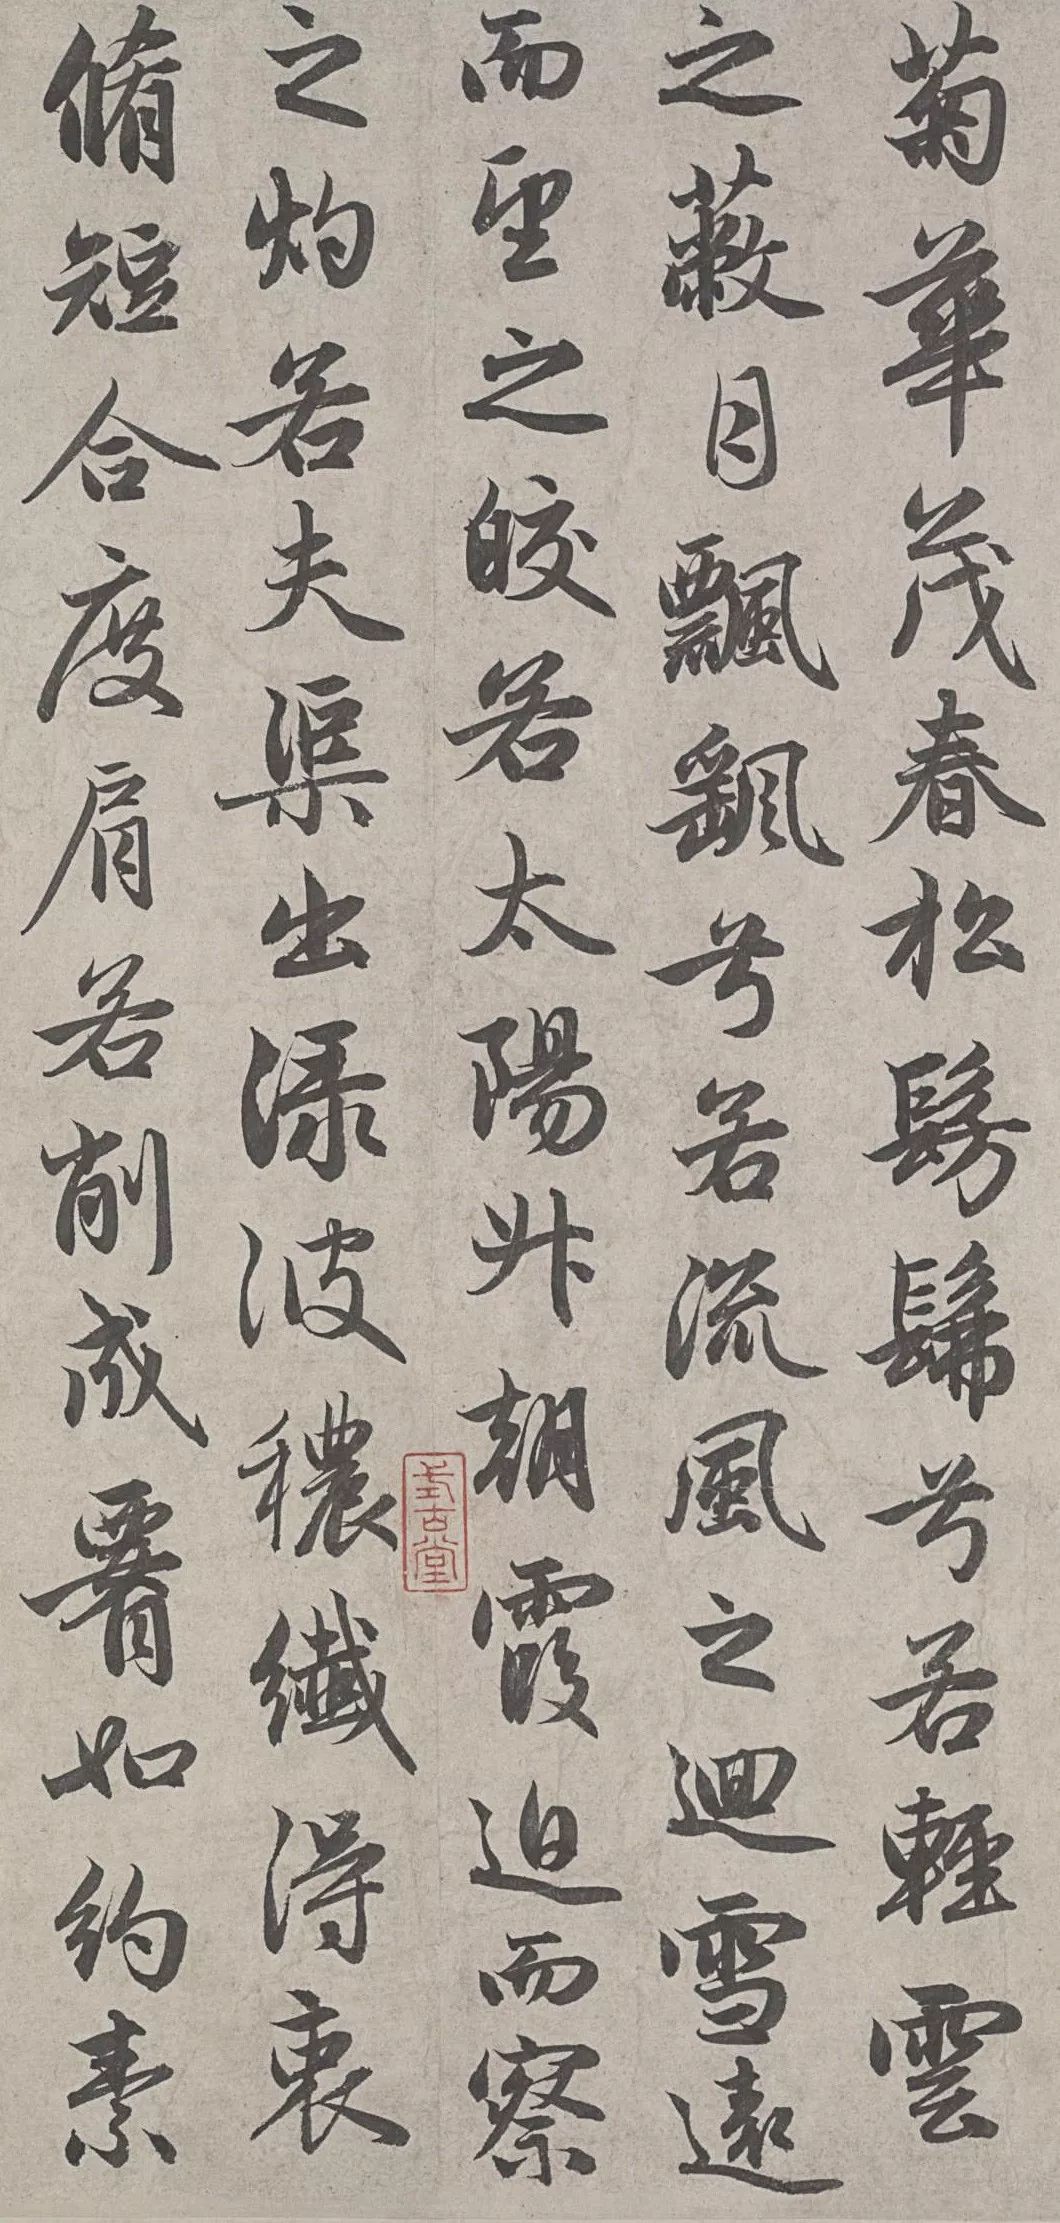 菊華茂春松髣髴兮若輕雲
之蔽月飄飖兮若流風之迴雪遠
而望之皎若太陽升朝霞迫而察
之灼若夫渠出淥波穠纖得衷
脩短合度肩若削成腰如約素
式古堂